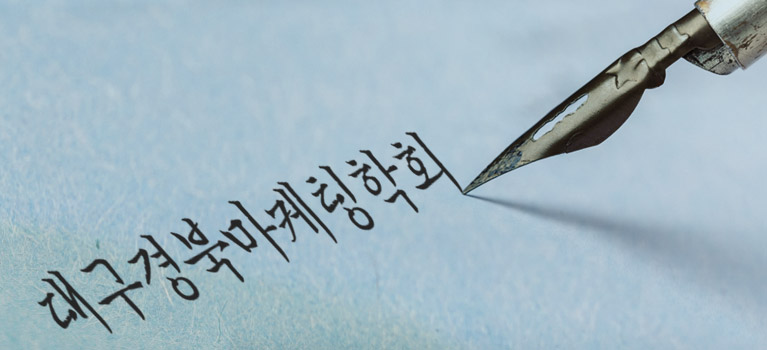 대구경북마케팅학회